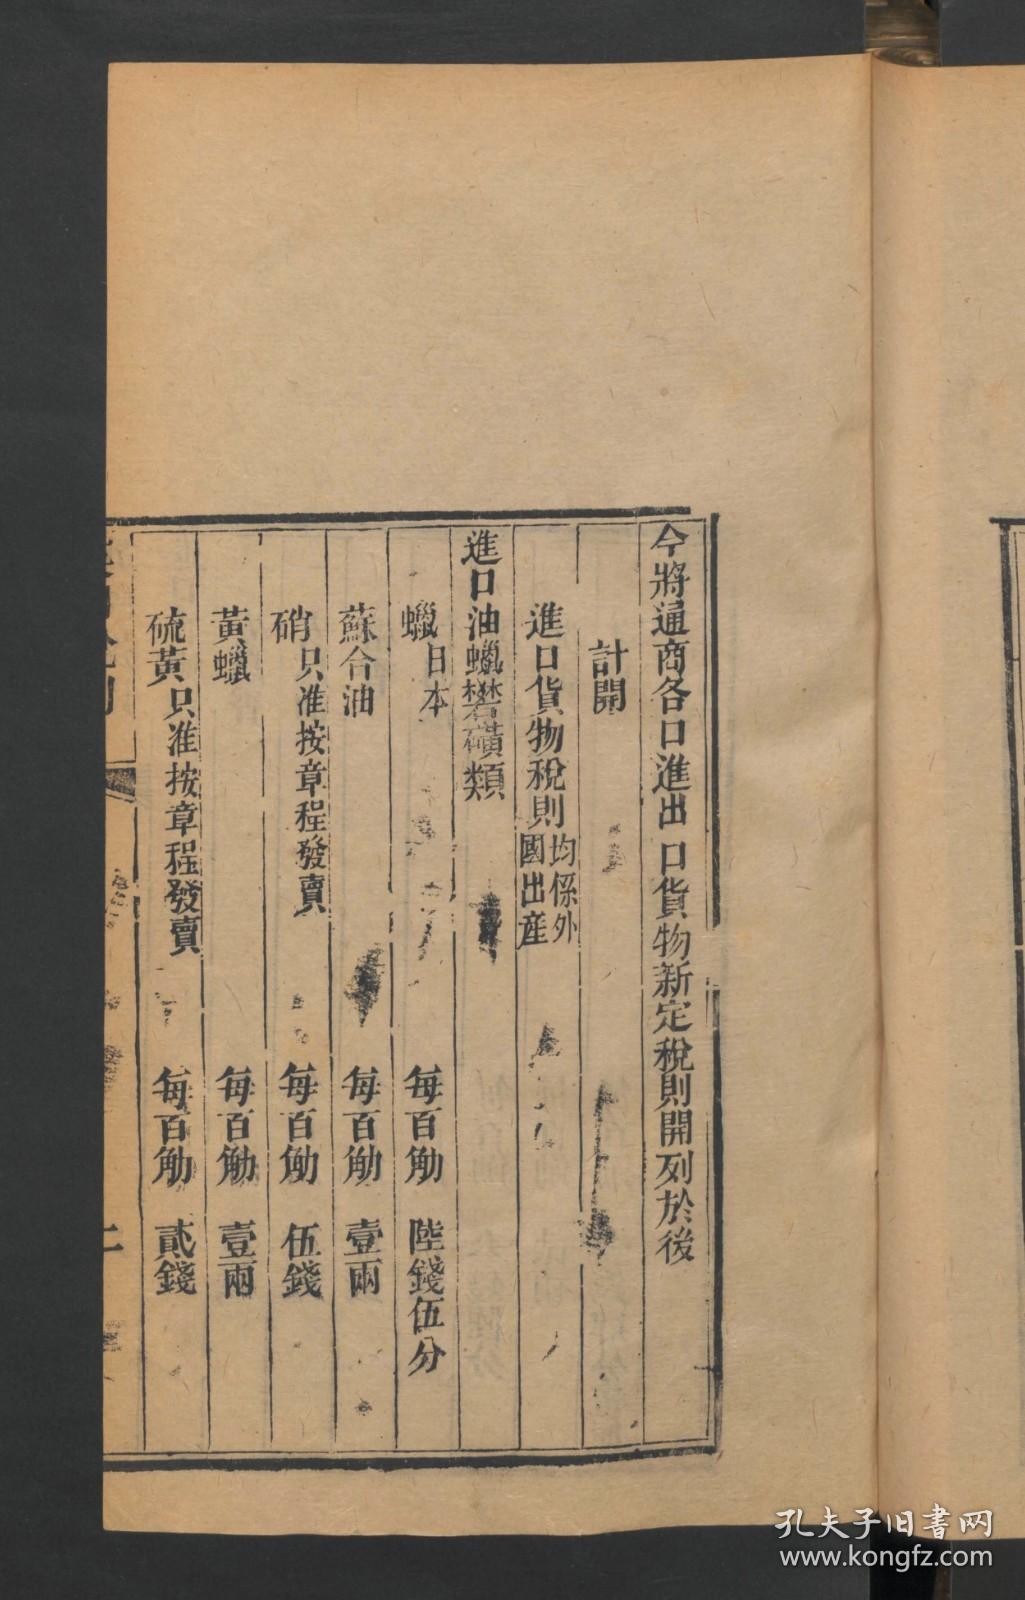 今將通商各口進出口貨物新定稅則開列於後
計開
進口貨物稅則均係外國出產
進口油蠟礬磺類
蠟日本 每百觔 陸錢伍分
蘇合油 每百觔 壹兩
硝只准按章程發賣 每百觔 伍錢
黃蠟 每百觔 壹兩
硫黃只准按章程發賣 每百觔 貳錢
孔夫子旧书网
www.kongfz.com